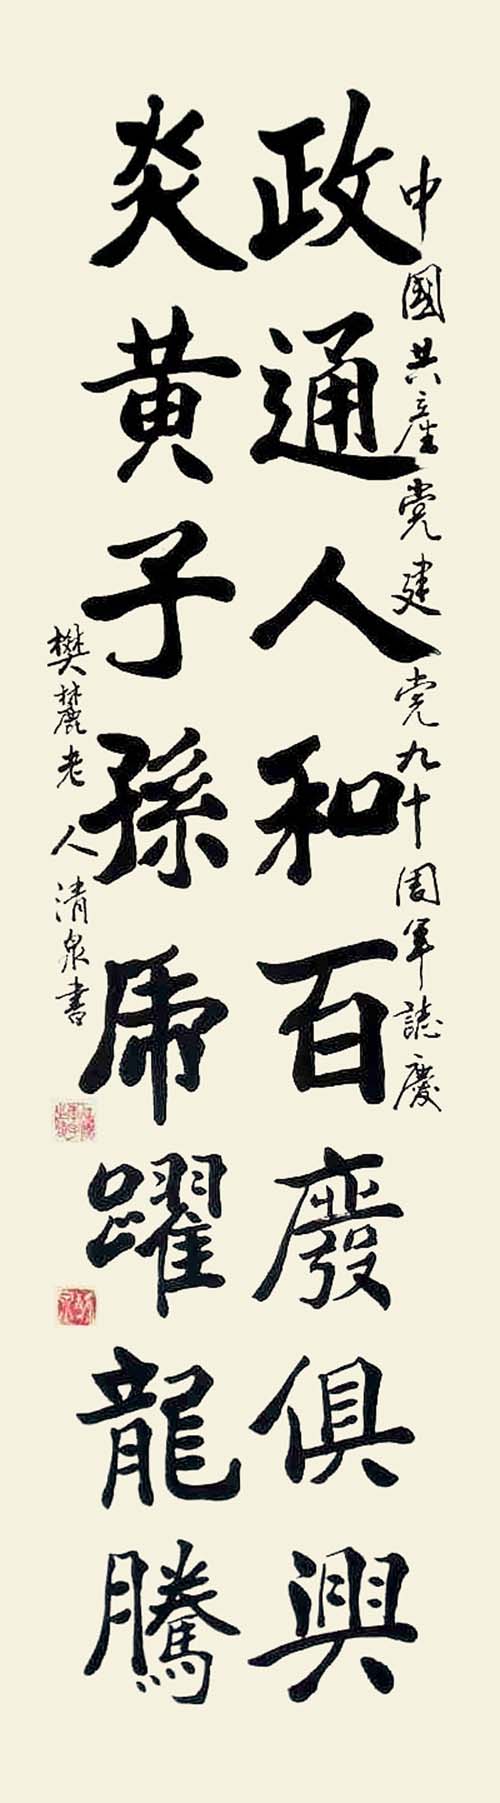 中國共產党建党九十周年誌慶
政通人和百廢俱興
炎黃子孫虎躍龍騰
樊麓老人清泉書